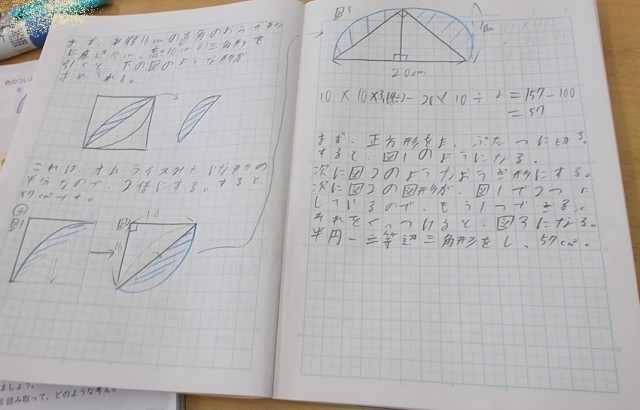 まず、半径10cmの直角のおうぎ形
底辺10cm、高さ10cmの三角形を
引くと、下の図のような形が
求められる。
これは、オムライスみたいな形の
半分なので、2倍にする。すると
57cm²です。
②
図1
図2
10
図3
10cm
20cm
10×10×3.14÷2-20×10÷2=157-100
=57
まず、正方形を、ふたつに切る。
すると、図1のようになる。
次に図2のようなおうぎ形にする。
次に図2の図形が、図1で2つに
しているので、もう1つできる。
それをくっつけると、図3になる。
半円-二等辺三角形をし、57cm²。
ましょう。
を読み取って、どのような考え